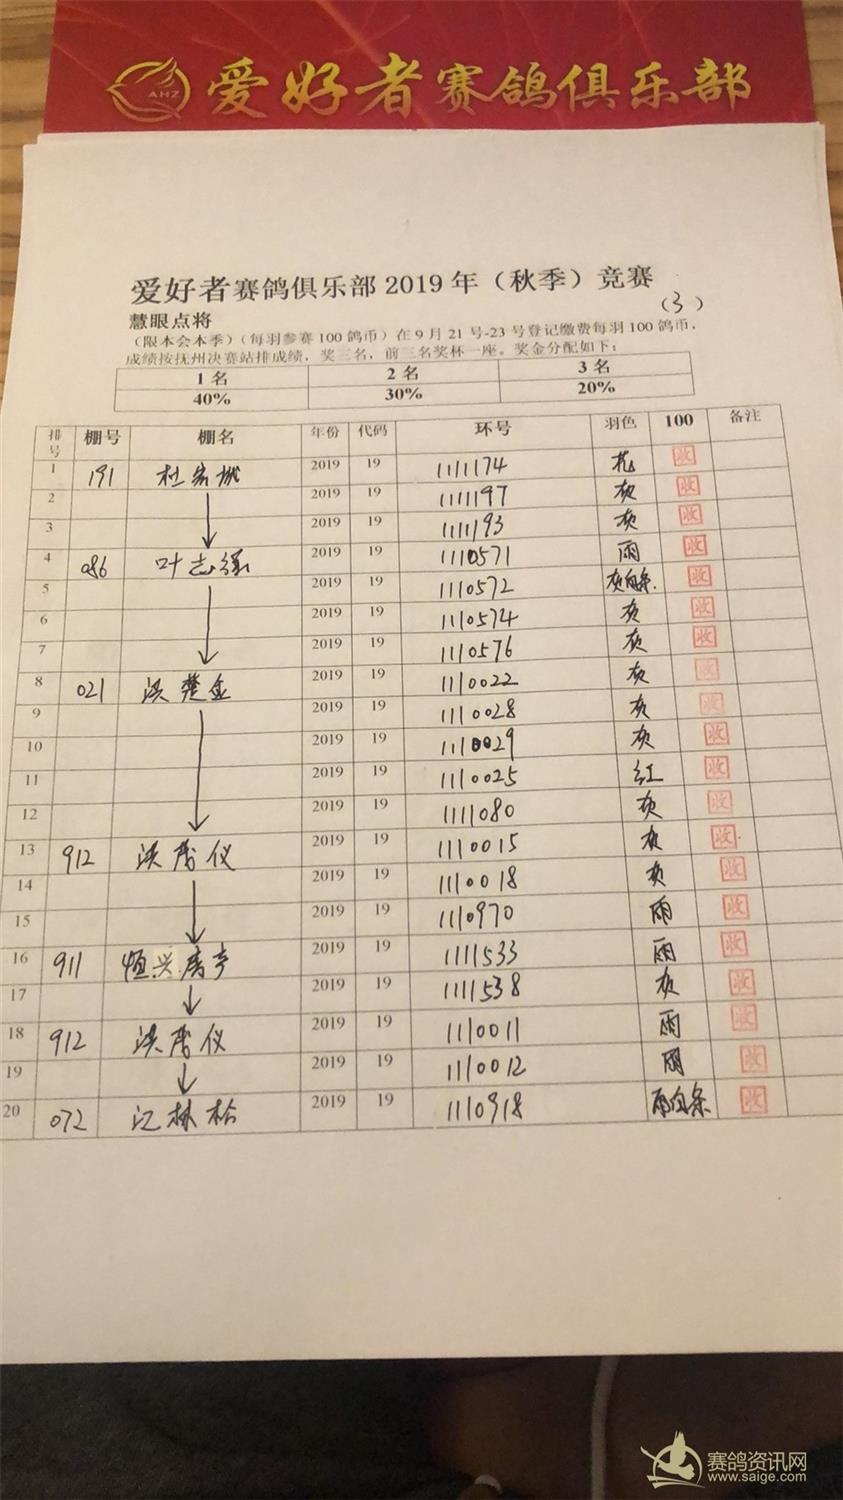 AHZ 爱好者赛鸽俱乐部
爱好者赛鸽俱乐部2019年（秋季）竞赛
（3）
慧眼点将
（限本会本季）（每羽参赛100鸽币）在9月21号-23号登记缴费每羽100鸽币，
成绩按抚州决赛站排成绩，奖三名，前三名奖杯一座。奖金分配如下：
1名 2名 3名
40% 30% 20%
排号 棚号 棚名 年份 代码 环号 羽色 100 备注
1 191 2019 19 1111174 花 收
2 2019 19 1111197 灰 收
3 2019 19 1111193 灰 收
4 086 叶志强 2019 19 1110571 雨 收
5 2019 19 1110572 灰白条 收
6 2019 19 1110574 灰 收
7 2019 19 1110576 灰 收
8 021 洪楚金 2019 19 1110022 灰 收
9 2019 19 1110028 灰 收
10 2019 19 1110029 灰 收
11 2019 19 1110025 红 收
12 2019 19 1111080 灰 收
13 912 2019 19 1110015 灰 收
14 2019 19 1110018 灰 收
15 2019 19 1110970 雨 收
16 911 2019 19 1111533 雨 收
17 2019 19 1111538 灰 收
18 912 2019 19 1110011 雨 收
19 2019 19 1110012 雨 收
20 072 江林松 2019 19 1110918 雨白条 收
赛鸽资讯网
www.saige.com